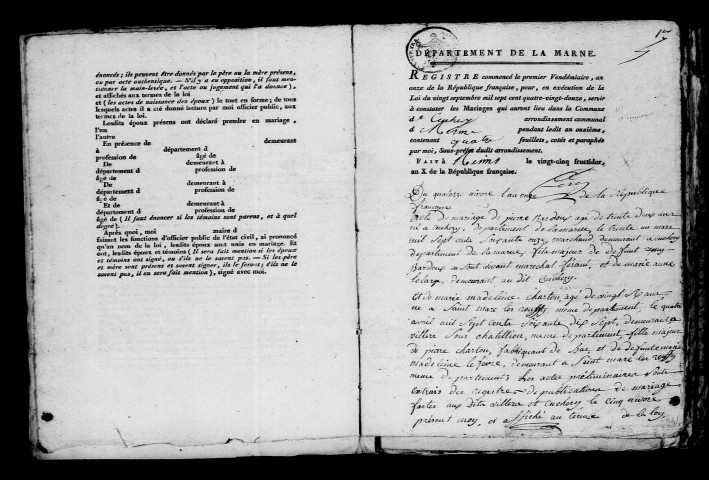 énoncés ; ils peuvent être donnés par le père ou la mère présens,
ou par acte authentique. — S'il y a eu opposition, il faut men-
tionner la main-levée, et l'acte ou jugement qui l'a donnée),
et affichés aux termes de la loi
et (les actes de naissance des époux) le tout en forme ; de tous
lesquels actes il a été donné lecture par moi officier public, aux
termes de la loi.
Lesdits époux présens ont déclaré prendre en mariage,
l'un
l'autre
En présence de demeurant
à département d
profession de âgé de
De demeurant à
département d profession de
âgé de
De demeurant à
département d profession de
âgé de
Et de demeurant à
département d profession de
âgé de (Il faut énoncer si les témoins sont parens, et à quel
degré).
Après quoi, moi maire d
faisant les fonctions d'officier public de l'état civil, ai prononcé
qu'au nom de la loi, lesdits époux sont unis en mariage. Et
ont, lesdits époux et témoins (Il sera fait mention si les époux
et témoins ont signé, ou s'ils ne le savent pas. — Si les père
et mère sont présens et savent signer, ils le feront ; s'ils ne le
savent pas, il en sera fait mention), signé avec moi.
DÉPARTEMENT DE LA MARNE.
REGISTRE commencé le premier Vendémiaire, an
onze de la République française, pour, en exécution de la
Loi du vingt septembre mil sept cent quatre-vingt-douze, servir
à constater les Mariages qui auront lieu dans la Commune
de Cuchery arrondissement communal
d Reims pendant ledit an onzième,
contenant quatre feuillets, cotés et paraphés
par moi, Sous-préfet dudit arrondissement.
FAIT à Reims le vingt-cinq fructidor,
an X de la République française.
Du quatorze nivose l'an onze de la République
française
acte de mariage de pierre Bardoux age de trente deux ans
né a cuchery, departement de la marne, le trente un mars
mil Sept cents Soixante onze, marchand demeurant a cuchery
departement de la marne, fils majeur de defunt remy
Bardoux en Son vivant marechal ferant, et de marie anne
le large demeurant au dit Cuchery.
et de marie madeleine charlou, agé de vingt Six ans
né a Saint mare les rouffy meme departement, le quatre
avril mil Sept cents Soixante dix Sept, demeurant a
villers Sous chatillion, meme departement, fille majeure
de pierre charlou, fabriquant de Bas et de defunte marie
madeleine le fevre, demeurant a Saint mare les rouffy
meme departement. Les actes préliminaires Sont
extrais des registre de publications de mariage
faites aux dits villers et Cuchery le cinq nivose
présent mois, et affiché au terme de la loy